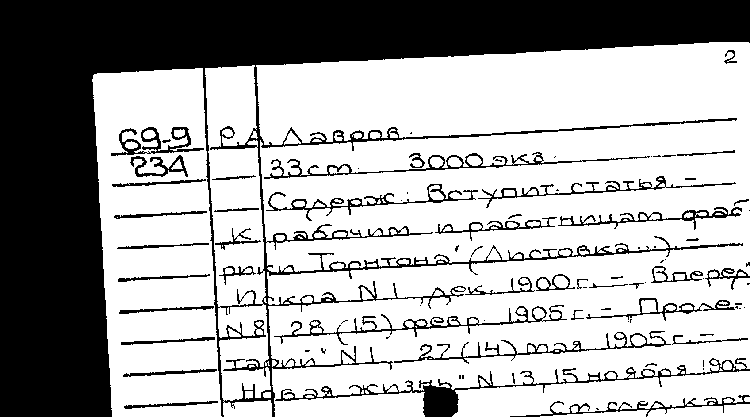 2
69-9 Р.А. Лавров.
234 33 см. 3000 экз.
Содерж.: Вступит. статья. –
„К рабочим и работницам фаб-
рики Торнтона" (Листовка...). –
„Искра" N 1, дек. 1900 г. – „Вперед"
N 8, 28 (15) февр. 1905 г. – „Проле-
тарий" N 1, 27 (14) мая 1905 г. –
„Новая жизнь" N 13, 15 ноября 1905
См. след. карт